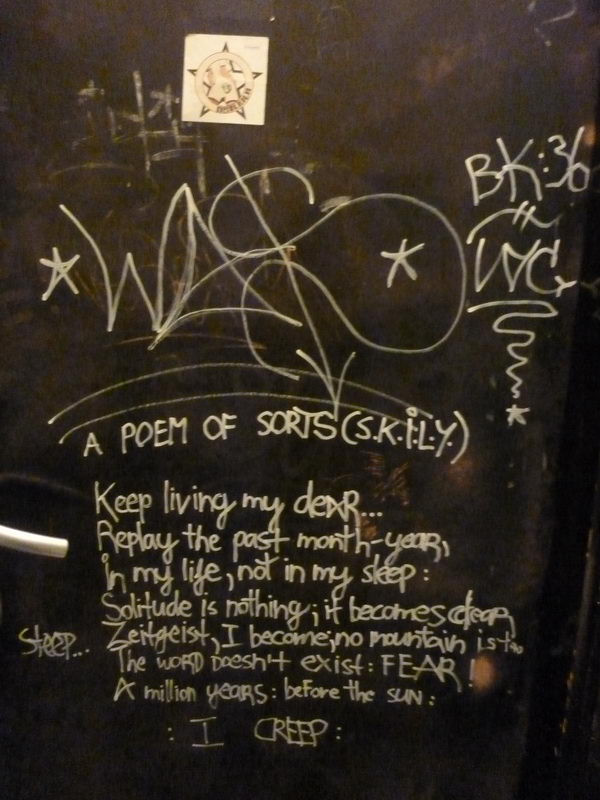 BK:36
NYC
A POEM OF SORTS (S.K.I.L.Y.)
Keep living my deAR...
Replay the past month-year,
in my life, not in my sleep:
Solitude is nothing; it becomes clear,
Zeitgeist, I become; no mountain is too
steep...
The WORD Doesn't exist: FEAR!
A million years: before the SUN:
: I CREEP: